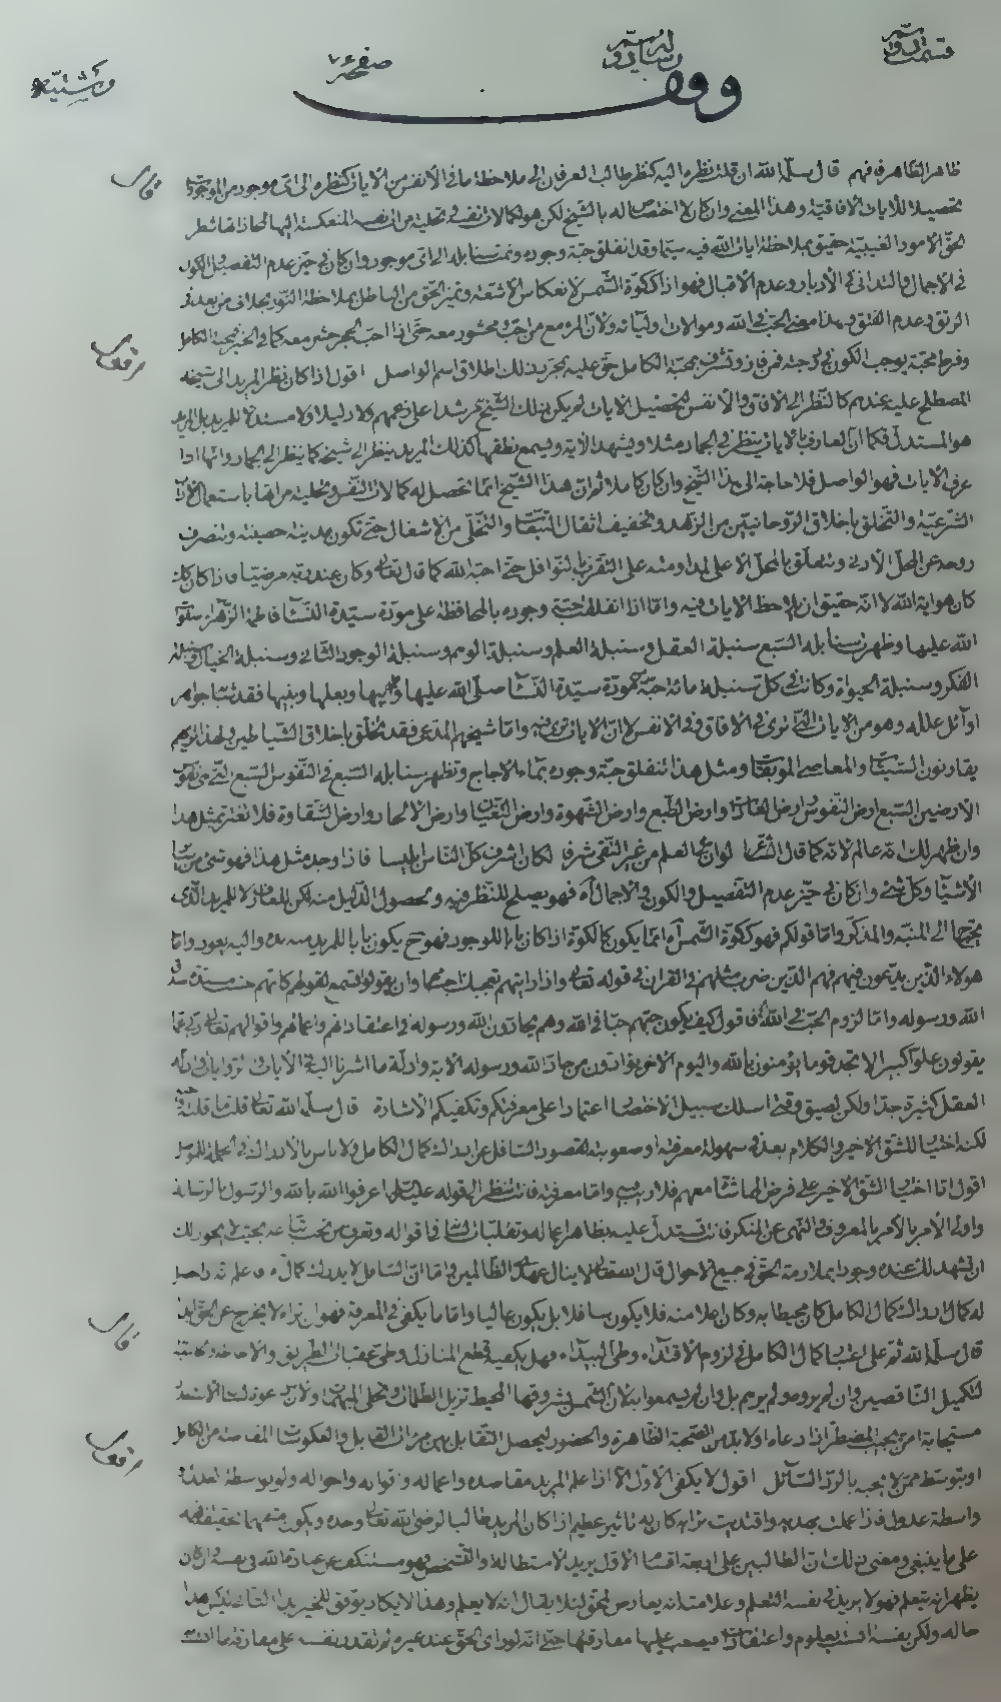 صفحه
وقف
ظاهر الظاهر فافهم قال سلمه الله ان قلت نظره اليه كنظر طالب العرفان الى ملاحظة ما في الأنفس من الآيات كنظره الى اي موجود من الموجودات
تحصيلا للآيات الآفاقية وهذا المعنى وان كان لا اختصاص له بالشيخ لكن هو لكمالات نفسه
الحق الأمور الغيبية حقيق بملاحظة آيات الله فيه سيما وقد انفلق حبة وجوده ونمت سنابله الى اي موجود وان كان في حيز عدم التفصيل والكون
في الاجمال والتداني في الأدبار وعدم الاقبال فهو اذا ككوة الشمس لانعكاس الأشعة وتميز الحق من الباطل بملاحظة النور بخلاف من بعد في
الرتق وعدم الفتق وهذا معنى الحب في الله وموالات اوليائه ولأن المرء مع من احب محشور معه حتى اذا احب الحجر حشر معه كما في الخبر فمحبة الكامل
وفرط محبة يوجب الكون في درجته فمن فاز وتشرف بمحبة الكامل حق عليه بمجرد ذلك اطلاق اسم الواصل اقول اذا كان نظر المريد الى شيخه
المصطلح عليه عندهم كالنظر الى الآفاق والأنفس لتحصيل الآيات لم يكن ذلك الشيخ مرشدا على زعمهم ولا دليلا ولا مستدلا للمريد بل المريد
هو المستدل فكما ان العارف بالآيات ينظر في الجماد مثلا ويشهد الآية ويسمع نطقها كذلك المريد ينظر الى شيخه كما ينظر الى الجماد وانما اذا
عرف الآيات فهو الواصل فلا حاجة الى هذا الشيخ وان كان كاملا ثم ان هذا الشيخ انما تحصل له كمالات النفس وتخلية مراتبها باستعمال الآداب
الشرعية والتخلق باخلاق الروحانيين من الزهد وتخفيف اثقال التبعات والتخلي من الأشغال حتى تكون مدينته حصينة وتنصرف
روحه عن المحل الأدنى وتتعلق بالمحل الأعلى لمداومته على التقرب بالنوافل حتى احبه الله كما قال تعالى وكان عند ربه مرضيا فاذا كان كذلك
كان هو آية الله لا انه حقيق ان يلاحظ الآيات فيه واما اذا انفلقت حبة وجوده بالمحافظة على مودة سيدة النساء فاطمة الزهراء صلوات
الله عليها وظهرت سنابله السبع سنبلة العقل وسنبلة العلم وسنبلة الوهم وسنبلة الوجود الثاني وسنبلة الخيال وسنبلة
الفكر وسنبلة الحيوة وكانت في كل سنبلة مائة حبة كمودة سيدة النساء صلى الله عليها وابيها وبعلها وبنيها فقد شابه جواهر
اوائل علله وهو من الآيات التي نرى في الآفاق وفي الأنفس لا ان الآيات نرى فيه واما شيخهم المدعى فقد تخلق باخلاق الشياطين ولهذا تريهم
يقارنون السيئات والمعاصي الموبقات ومثل هذا تنفلق حبة وجوده بماء الأجاج وتظهر سنابله السبع في النفوس السبع التي هي نفوس
الأرضين السبع ارض النفوس وارض العادات وارض الطبع وارض الشهوة وارض الطغيان وارض الالحاد وارض الشقاوة فلا تغتر بمثل هذا
وان ظهر لك انه عالم لأنه كما قال الشاعر لو ان في العلم من غير التقى شرفا لكان اشرف كل الناس ابليسا فاذا وجد مثل هذا فهو شيء من سائر
الأشياء وكل شيء وان كان في حيز عدم التفصيل والكون في الاجمال اه فهو يصلح للنظر فيه وتحصول الدليل منه لكن للعارف لا للمريد الذي
يحتاج الى المنبه والمذكر واما قولكم فهو ككوة الشمس اه انما يكون كالكوة اذا كان بابا للوجود فهو ح يكون بابا للمريد منه بدء واليه يعود واما
هؤلاء الذين يدعون فيهم فهم الذين ضرب مثلهم في القرآن في قوله تعالى واذا رايتهم تعجبك اجسامهم وان يقولوا تسمع لقولهم كانهم خشب مسندة
الله ورسوله واما لزوم الحب في الله فاقول كيف يكون حبهم حبا في الله وهم يحادون الله ورسوله في اعتقاداتهم واعمالهم واقوالهم تعالى ربي عما
يقولون علوا كبيرا لا تجد قوما يؤمنون بالله واليوم الآخر يوادون من حاد الله ورسوله الآية وادلة ما اشرنا اليه في الآيات والروايات وادلة
العقل كثيرة جدا ولكن لضيق وقتي اسلك سبيل الاختصار اعتمادا على معرفتكم وتكفيكم الأشارة قال سلمه الله تعالى
لكنه اختيار للشق الأخير والكلام بعد في سهولة معرفته وصعوبته لقصور السافل عن ادراك كمال الكامل ولا باس بالادراك في الجملة
اقول اما اختيار الشق الأخير على فرض انها تنشأ معهم فلا ريب فيه واما معرفته فانت انظر الى قوله عليه السلام اعرفوا الله بالله والرسول بالرسالة
واولي الأمر بالأمر بالمعروف والنهي عن المنكر فانت تستدل عليه بظاهر اعماله
ان تشهد لك عنده وجودا بملازمة الحق في جميع الأحوال قال الله تعالى لا ينال عهدي الظالمين واما ان السافل لا يدرك كمال
له كمال ادراك كمال الكامل كان محيطا به وكان اعلا منه فلا يكون سافلا بل يكون عاليا واما ما يكفي في المعرفة فهو ان تراه لا يخرج عن الحق ابدا
قال سلمه الله ثم على اعتبار كمال الكامل في لزوم الاقتداء وطي البيداء وهل يكفيه قطع المنازل وطي عقبات الطريق
لتكميل الناقصين وان لم يروه ولم يرهم بل وان لم يسمعوا به لأن الشمس بشروقها المحيط تزيل الظلمات
مستجابة امن يجيب المضطر اذا دعاه او لا بد من الصحبة الظاهرة والحضور ليحصل التقابل بين مرات القابل والعكوسات المفاضة من الكامل
او بتوسط ممن لا يجبه بالرد السائل اقول لا يكفي الأول الا اذا علم المريد مقاصده واعماله واقواله واحواله ولو بوسطة
واسطة عدول فاذا علمت بهديه واقتديت بآثاره كان له تاثير عظيم اذا كان المريد طالبا لرضى الله تعالى وحده
على ما ينبغي ومعنى ذلك ان الطالبين على اربعة اقسام الأول يريد الاستطالة والتشخص فهو مستنكف عن عبادة الله في نفسه وان كان
يظهر انه يتعلم فهو لا يريد في نفسه التعلم وعلامته انه يعارض المحق لئلا يقال انه لا يعلم وهذا لا يكاد يوفق للخير ابدا
حاله ولكن نفسه انست بعلوم واعتقادات فيصعب عليها مفارقتها حتى انه لو راى الحق عند غيره لم تقدر نفسه على مفارقة ما انست